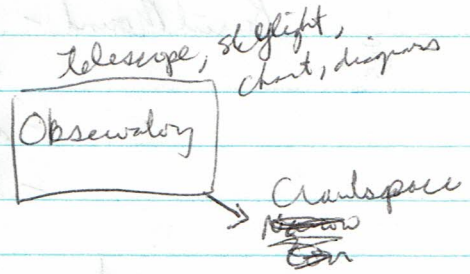 telescope, skylight,
chart, diagrams
Observatory
Crawlspace